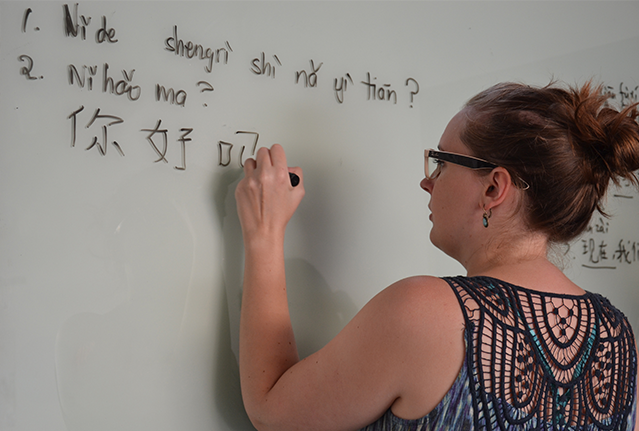 1. Nǐ de shengrì shì nǎ yì tiān?
2. Nǐ hǎo ma?
你好吗
现在